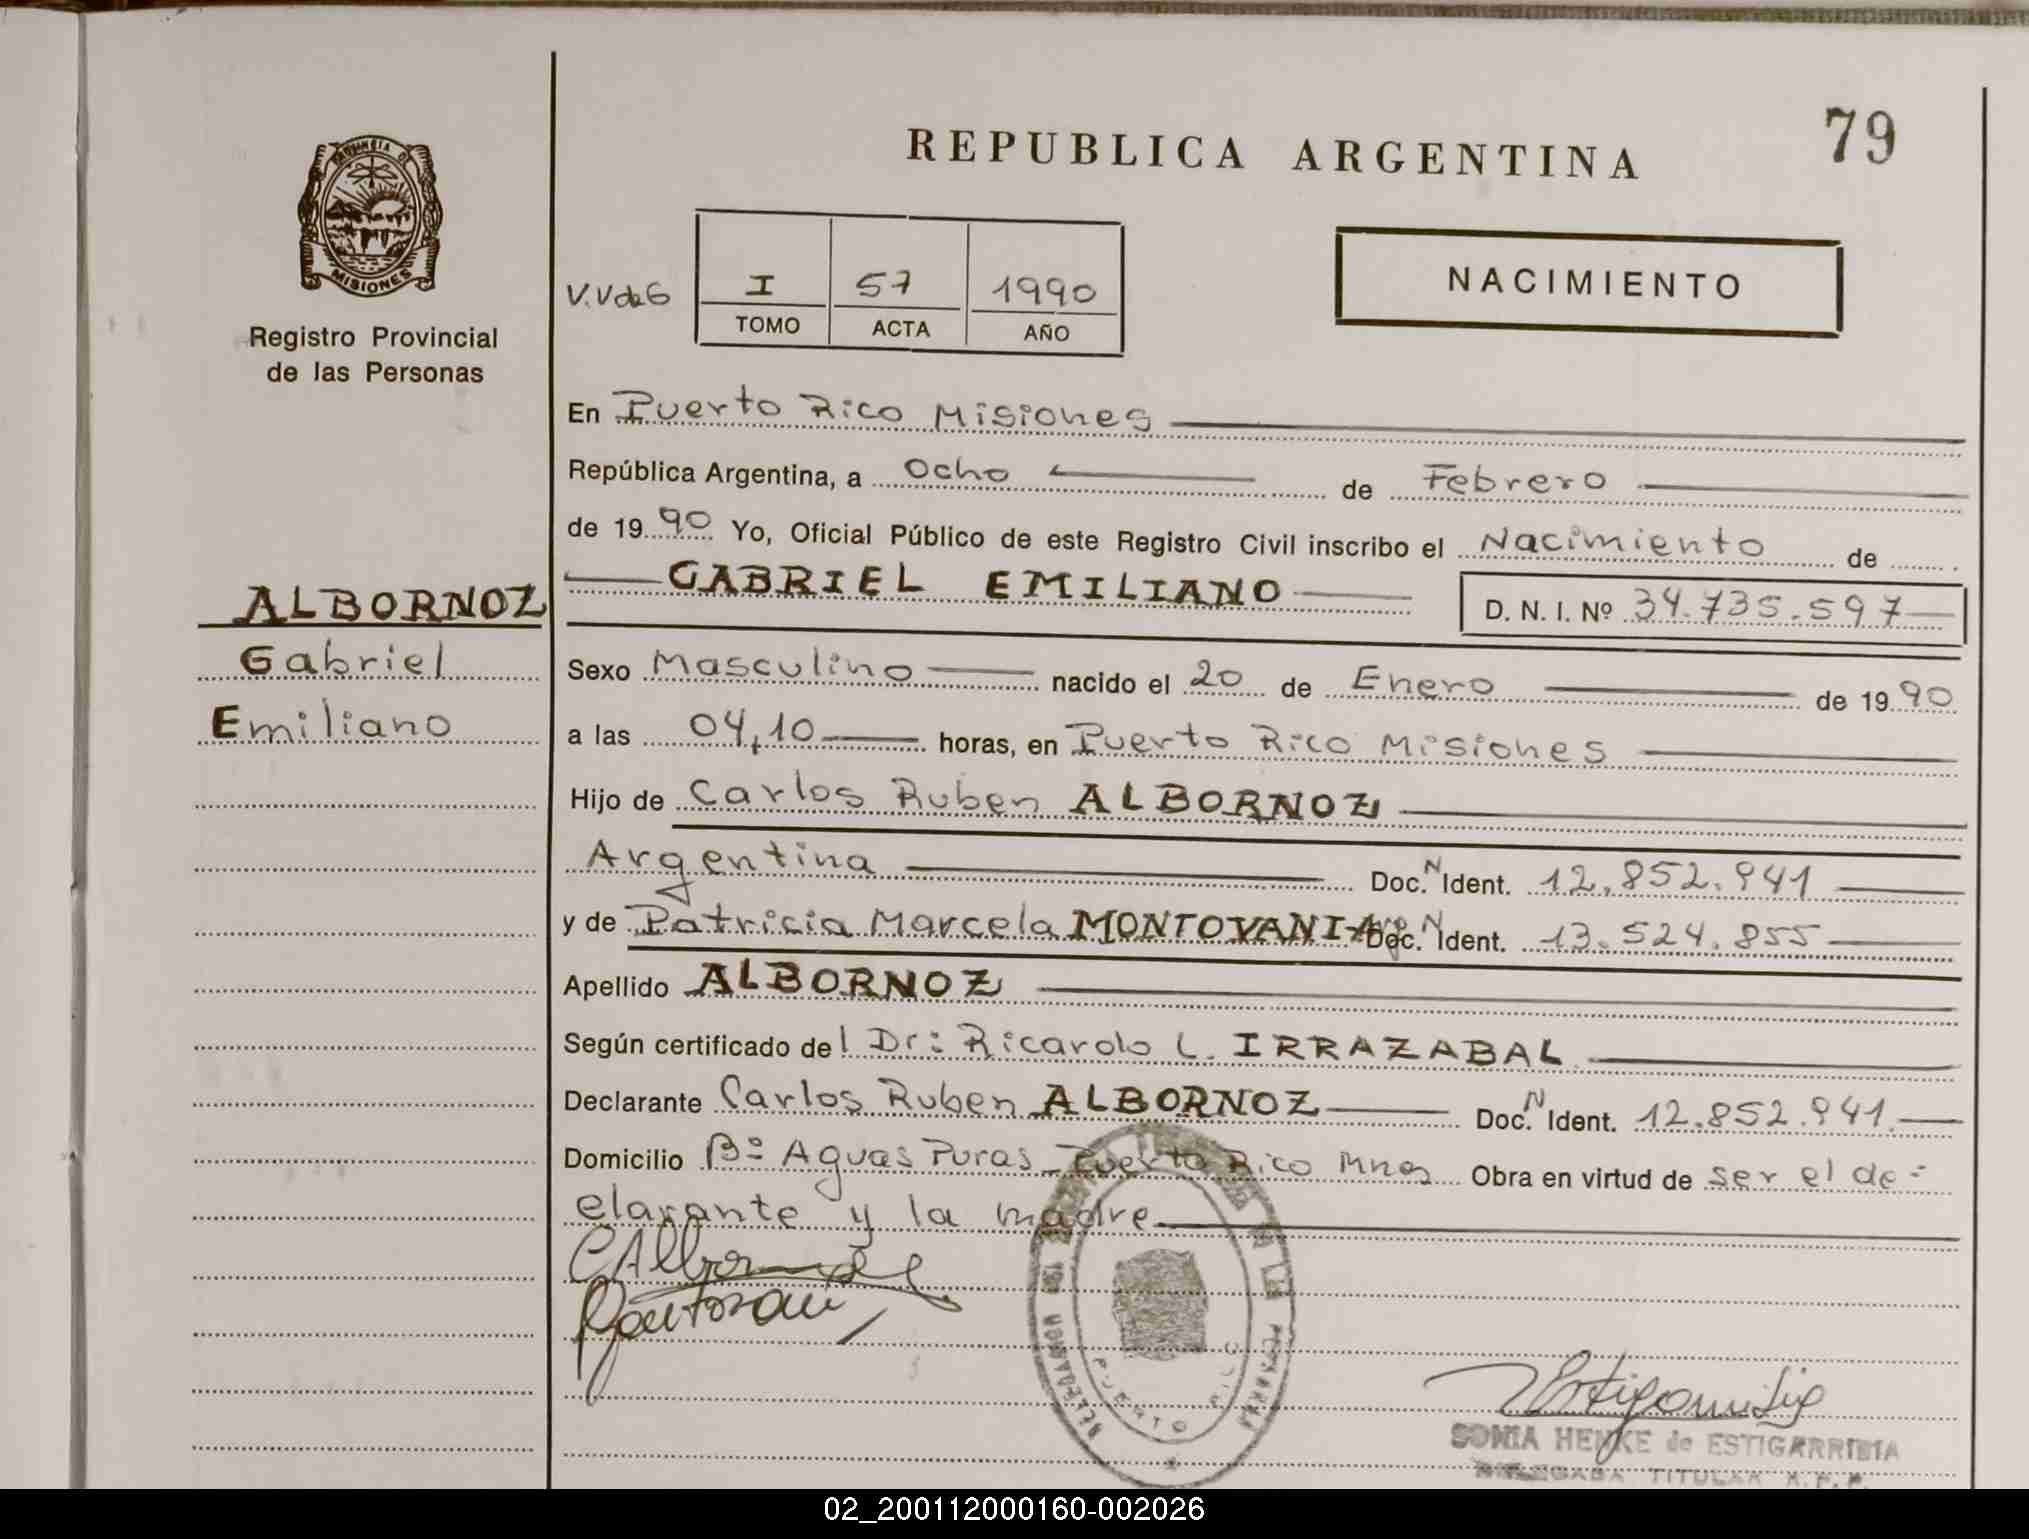 REPUBLICA ARGENTINA
79
PROVINCIA DE
MISIONES
Registro Provincial
de las Personas
V.V de G
I 57 1990
TOMO ACTA AÑO
NACIMIENTO
En Puerto Rico Misiones
República Argentina, a Ocho de Febrero
de 19 90 Yo, Oficial Público de este Registro Civil inscribo el Nacimiento de
GABRIEL EMILIANO D. N. I. Nº 34.735.597
ALBORNOZ
Gabriel
Emiliano
Sexo Masculino nacido el 20 de Enero de 19 90
a las 04,10 horas, en Puerto Rico Misiones
Hijo de Carlos Ruben ALBORNOZ
Argentina Doc. N Ident. 12.852.941
y de Patricia Marcela MONTOVANI Arg. Doc. N Ident. 13.524.855
Apellido ALBORNOZ
Según certificado del Dr: Ricardo L. IRRAZABAL
Declarante Carlos Ruben ALBORNOZ Doc. N Ident. 12.852.941
Domicilio Bº Aguas Puras Puerto Rico Mnes Obra en virtud de ser el de=
clarante y la madre
CAlbornoz
PUERTO RICO
SONIA HENKE de ESTIGARRIBIA
DELEGADA TITULAR R.P.P.
02_200112000160-002026